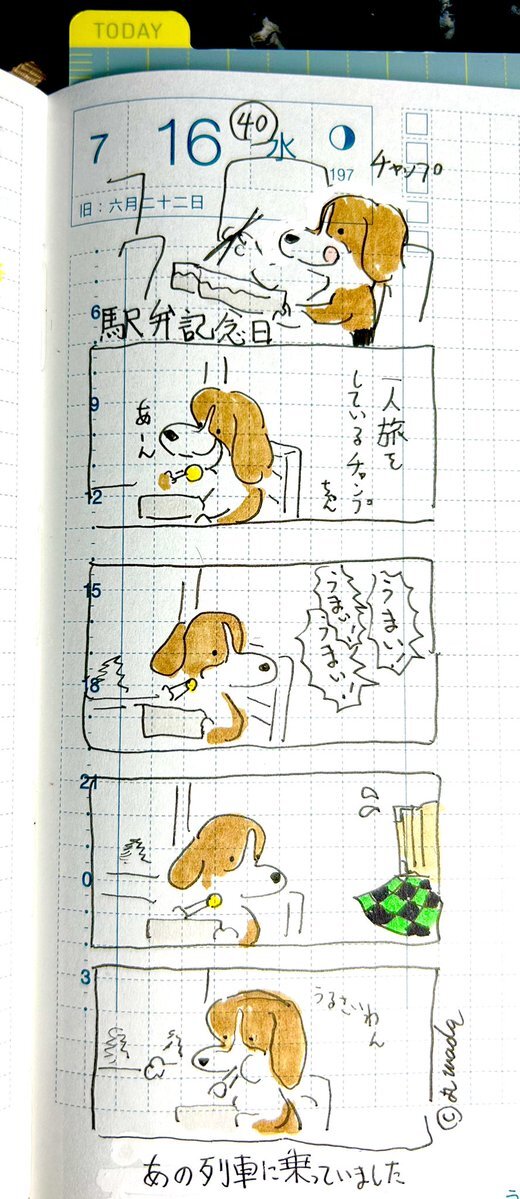 TODAY
7 16 水
㊵
197
旧：六月二十二日
チャップ
駅弁記念日
6
9
12
15
18
21
0
3
一人旅を
しているチャップ
ちゃん
あーん
うまい!
うまい!
うまい!
うるさいわん
あの列車に乗っていました